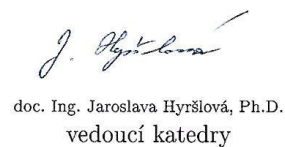 J. Hyršlová
doc. Ing. Jaroslava Hyršlová, Ph.D.
vedoucí katedry